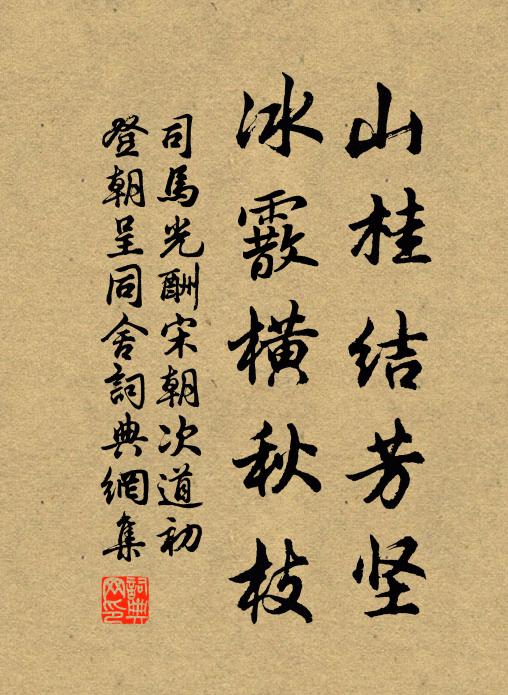 山桂结芳坚
冰霰横秋枝
司馬光酬宋朝次道初
登朝呈同舍詞典網集
詞典网印